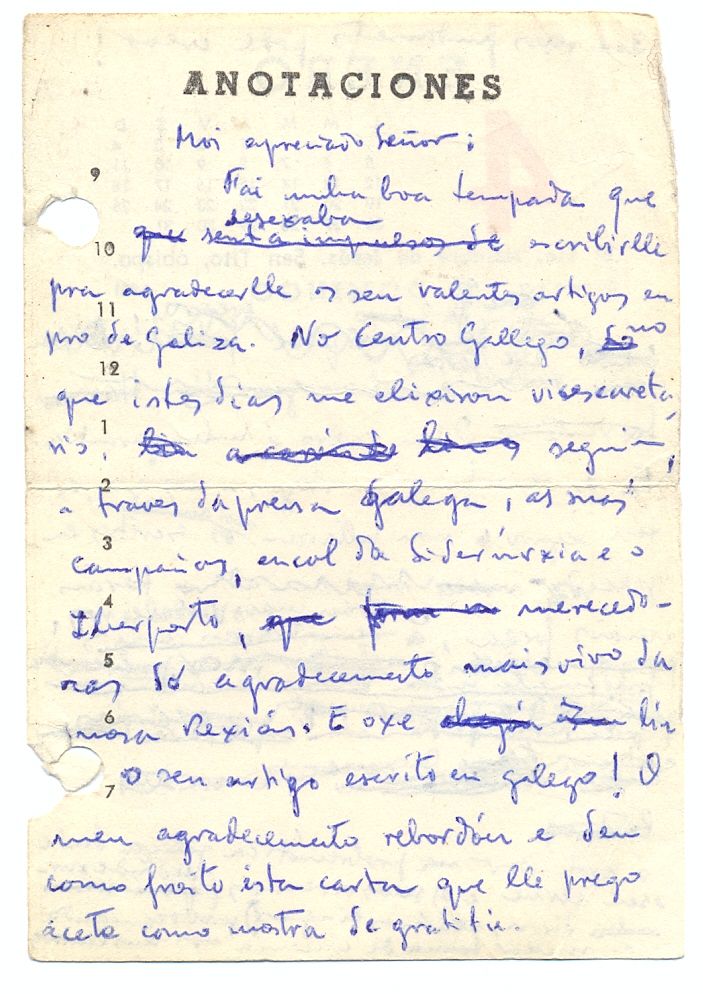 ANOTACIONES
Moi apreciado Señor:
9 Fai unha boa tempada que
desexaba
10 que sentía impulsos de escribirlle
pra agradecerlle os seu valentes artigos en
11
pro de Galiza. No Centro Gallego, no
12
que istes días me elixiron vicesecreta-
1
rio, lin seguín,
2
a traves da prensa galega, as suas
3
campañas, encol da Siderúrxia e o
4
Iberporto, que forma merecedo-
5
ras do agradecemento mais vivo da
6
nosa Rexión. E oxe lin
7 o seu artigo escrito en galego! O
meu agradecemento rebordóu e deu
como froito ista carta que lle prego
aceta como mostra de gratitú.